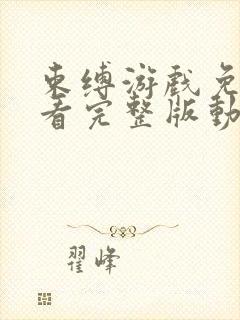 束缚游戏免
看完整版動
翟峰